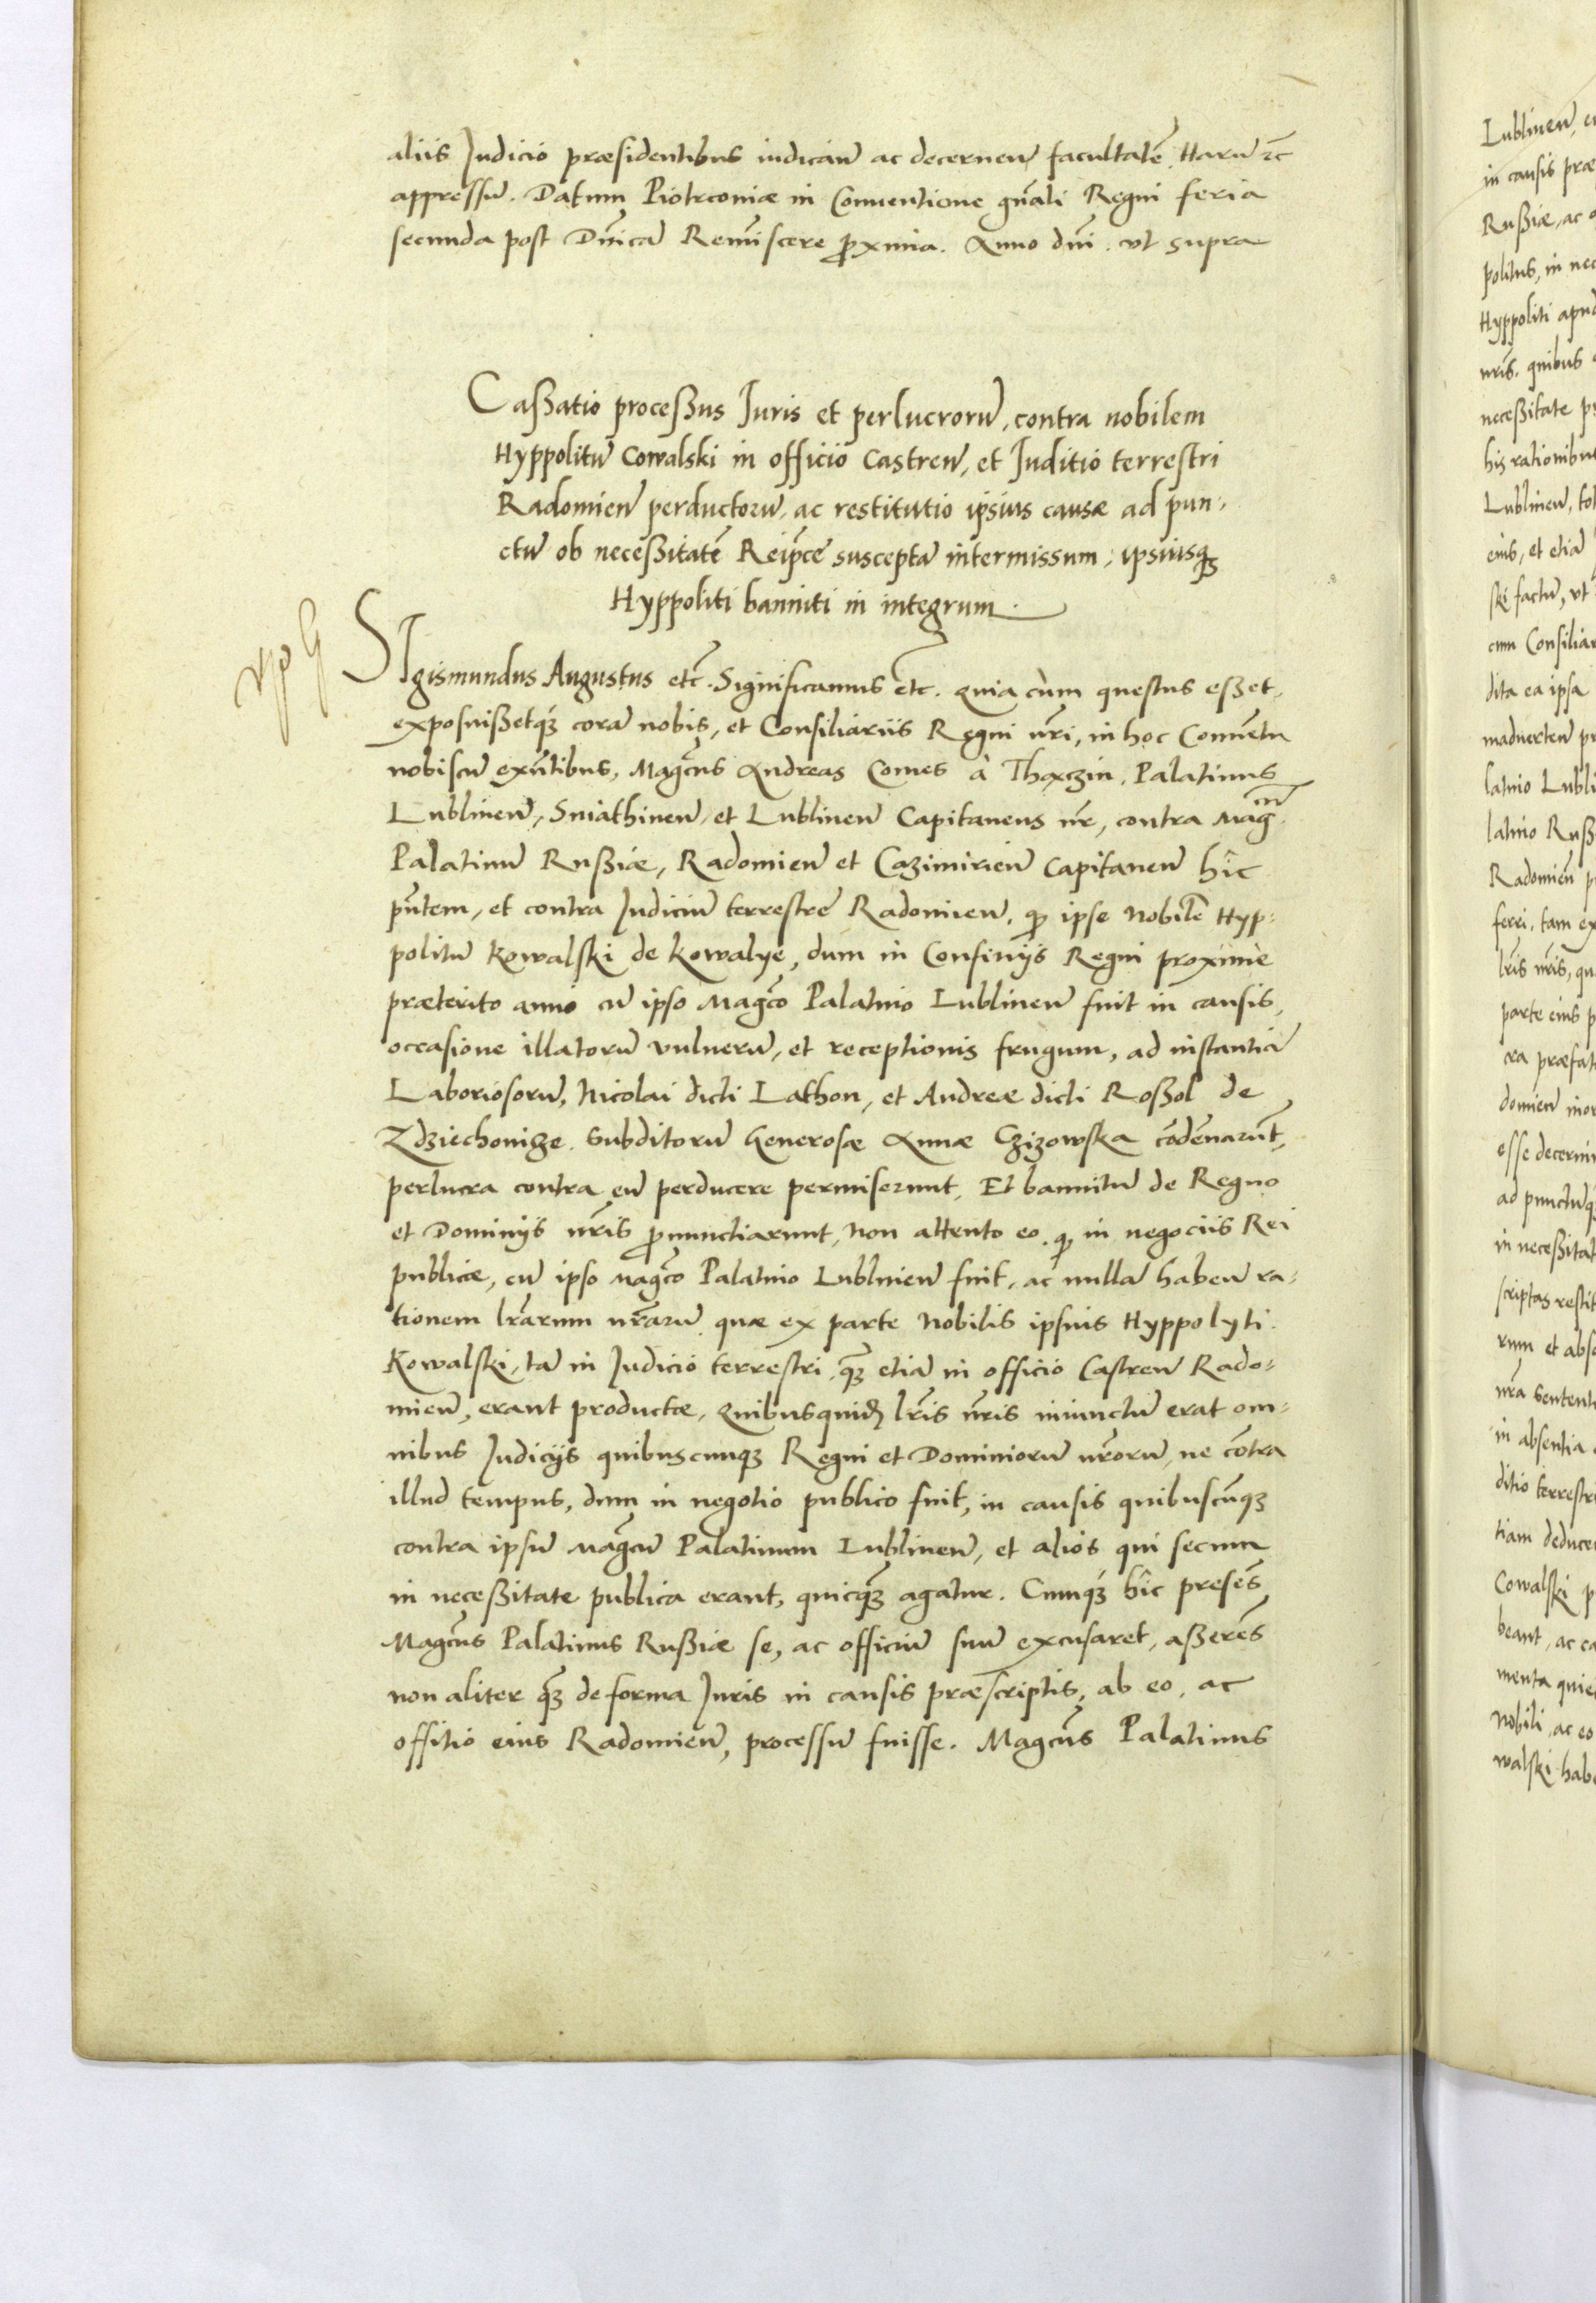 aliis Judicio præsidentibus iudican̄ ac decernen̄ facultatē Harū ꝛc
appressū. Datum Piotrconiæ in Conuentione gn̄ali Regni feria
secunda post Dn̄icā Remīscere ꝓxima. Anno dn̄i. vt supra
Caßatio proceßus Iuris et perlucrorū, contra nobilem
Hyppolitū Cowalski in officio Castren̄, et Iuditio terrestri
Radomien̄ perductorū, ac restitutio ipsius causæ ad pun-
ctū ob neceßitatē Reip̄cē susceptā intermissum, ipsiusqꝫ
Hyppoliti banniti in integrum.
SIgismundus Augustus etc̄. Significamus etc̄. Quia cùm questus eßet,
exposuißetqꝫ corā nobis, et Consiliariis Regni nr̄i, in hoc Conuētu
nobiscū exn̄tibus, Magc̄us Andreas Comes à Thaxczin, Palatinus
Lublinen̄, Sniathinen̄, et Lublinen̄ Capitaneus nr̄, contra Mag^cū
Palatinū Rußiæ, Radomien̄ et Cazimirien̄ Capitaneū hîc
pn̄tem, et contra Iudiciū terrestre Radomien̄, ꝙ ipse Nobilē Hyp-
politū Kowalski de Kowalye, dum in Confinijs Regni proximè
præterito anno cū ipso Magc̄o Palatino Lublinen̄ fuit in causis,
occasione illatorū vulnerū, et receptionis frugum, ad instantiā
Laboriosorū, Nicolai dicti Lathon, et Andreæ dicti Roßol de
Zdziechonicze. Subditorū Generosæ Annæ Czizowska cōdēnarūt,
perlucra contra eū perducere permiserunt, Et bannitū de Regno
et Dominijs nr̄is ꝓnunctiarunt, non attento eo, ꝙ in negociis Rei
publicæ, cū ipso Magc̄o Palatino Lublinien̄ fuit, ac nullā haben̄ ra-
tionem lr̄arum nr̄arū quæ ex parte Nobilis ipsius Hyppolyti
Kowalski, tā in Judicio terrestri, qꝫ̄ etiā in officio Castren̄ Rado-
mien̄, erant productæ, Quibusquidꝫ lr̄is nr̄is iniunctū erat om-
nibus Judicijs quibuscunqꝫ Regni et Dominiorū nr̄orū, ne cōtra
illud tempus, dum in negotio publico fuit, in causis quibuscūqꝫ
contra ipsū Magc̄ū Palatinum Lublinen̄, et alios qui secum
in neceßitate publica erant, quicqꝫ̄ agatur. Cumqꝫ hîc presēs
Magc̄us Palatinus Rußiæ se, ac officiū suū excusaret, aßerēs
non aliter qꝫ̄ de forma Juris in causis præscriptis, ab eo, ac
offitio eius Radomien̄, processū fuisse. Magc̄us Palatinus
Lublinen̄,
in causis
Rußiæ, ac
politus, in
Hyppoliti
nr̄is, quibus
neceßitate
his rationibus
Lublinen̄,
eius, et etiā
ski factū, vt
cum
dita ea ipsa
maduerten̄
latino
latino
Radomien̄
ferri, tam
lr̄is nr̄is,
parte eius
domien̄
esse
ad punctū
in
scriptas
rum et
nr̄a
in absentia
ditio
tiam
Cowalski
beant, ac
menta
Nobili, ac eo
walski